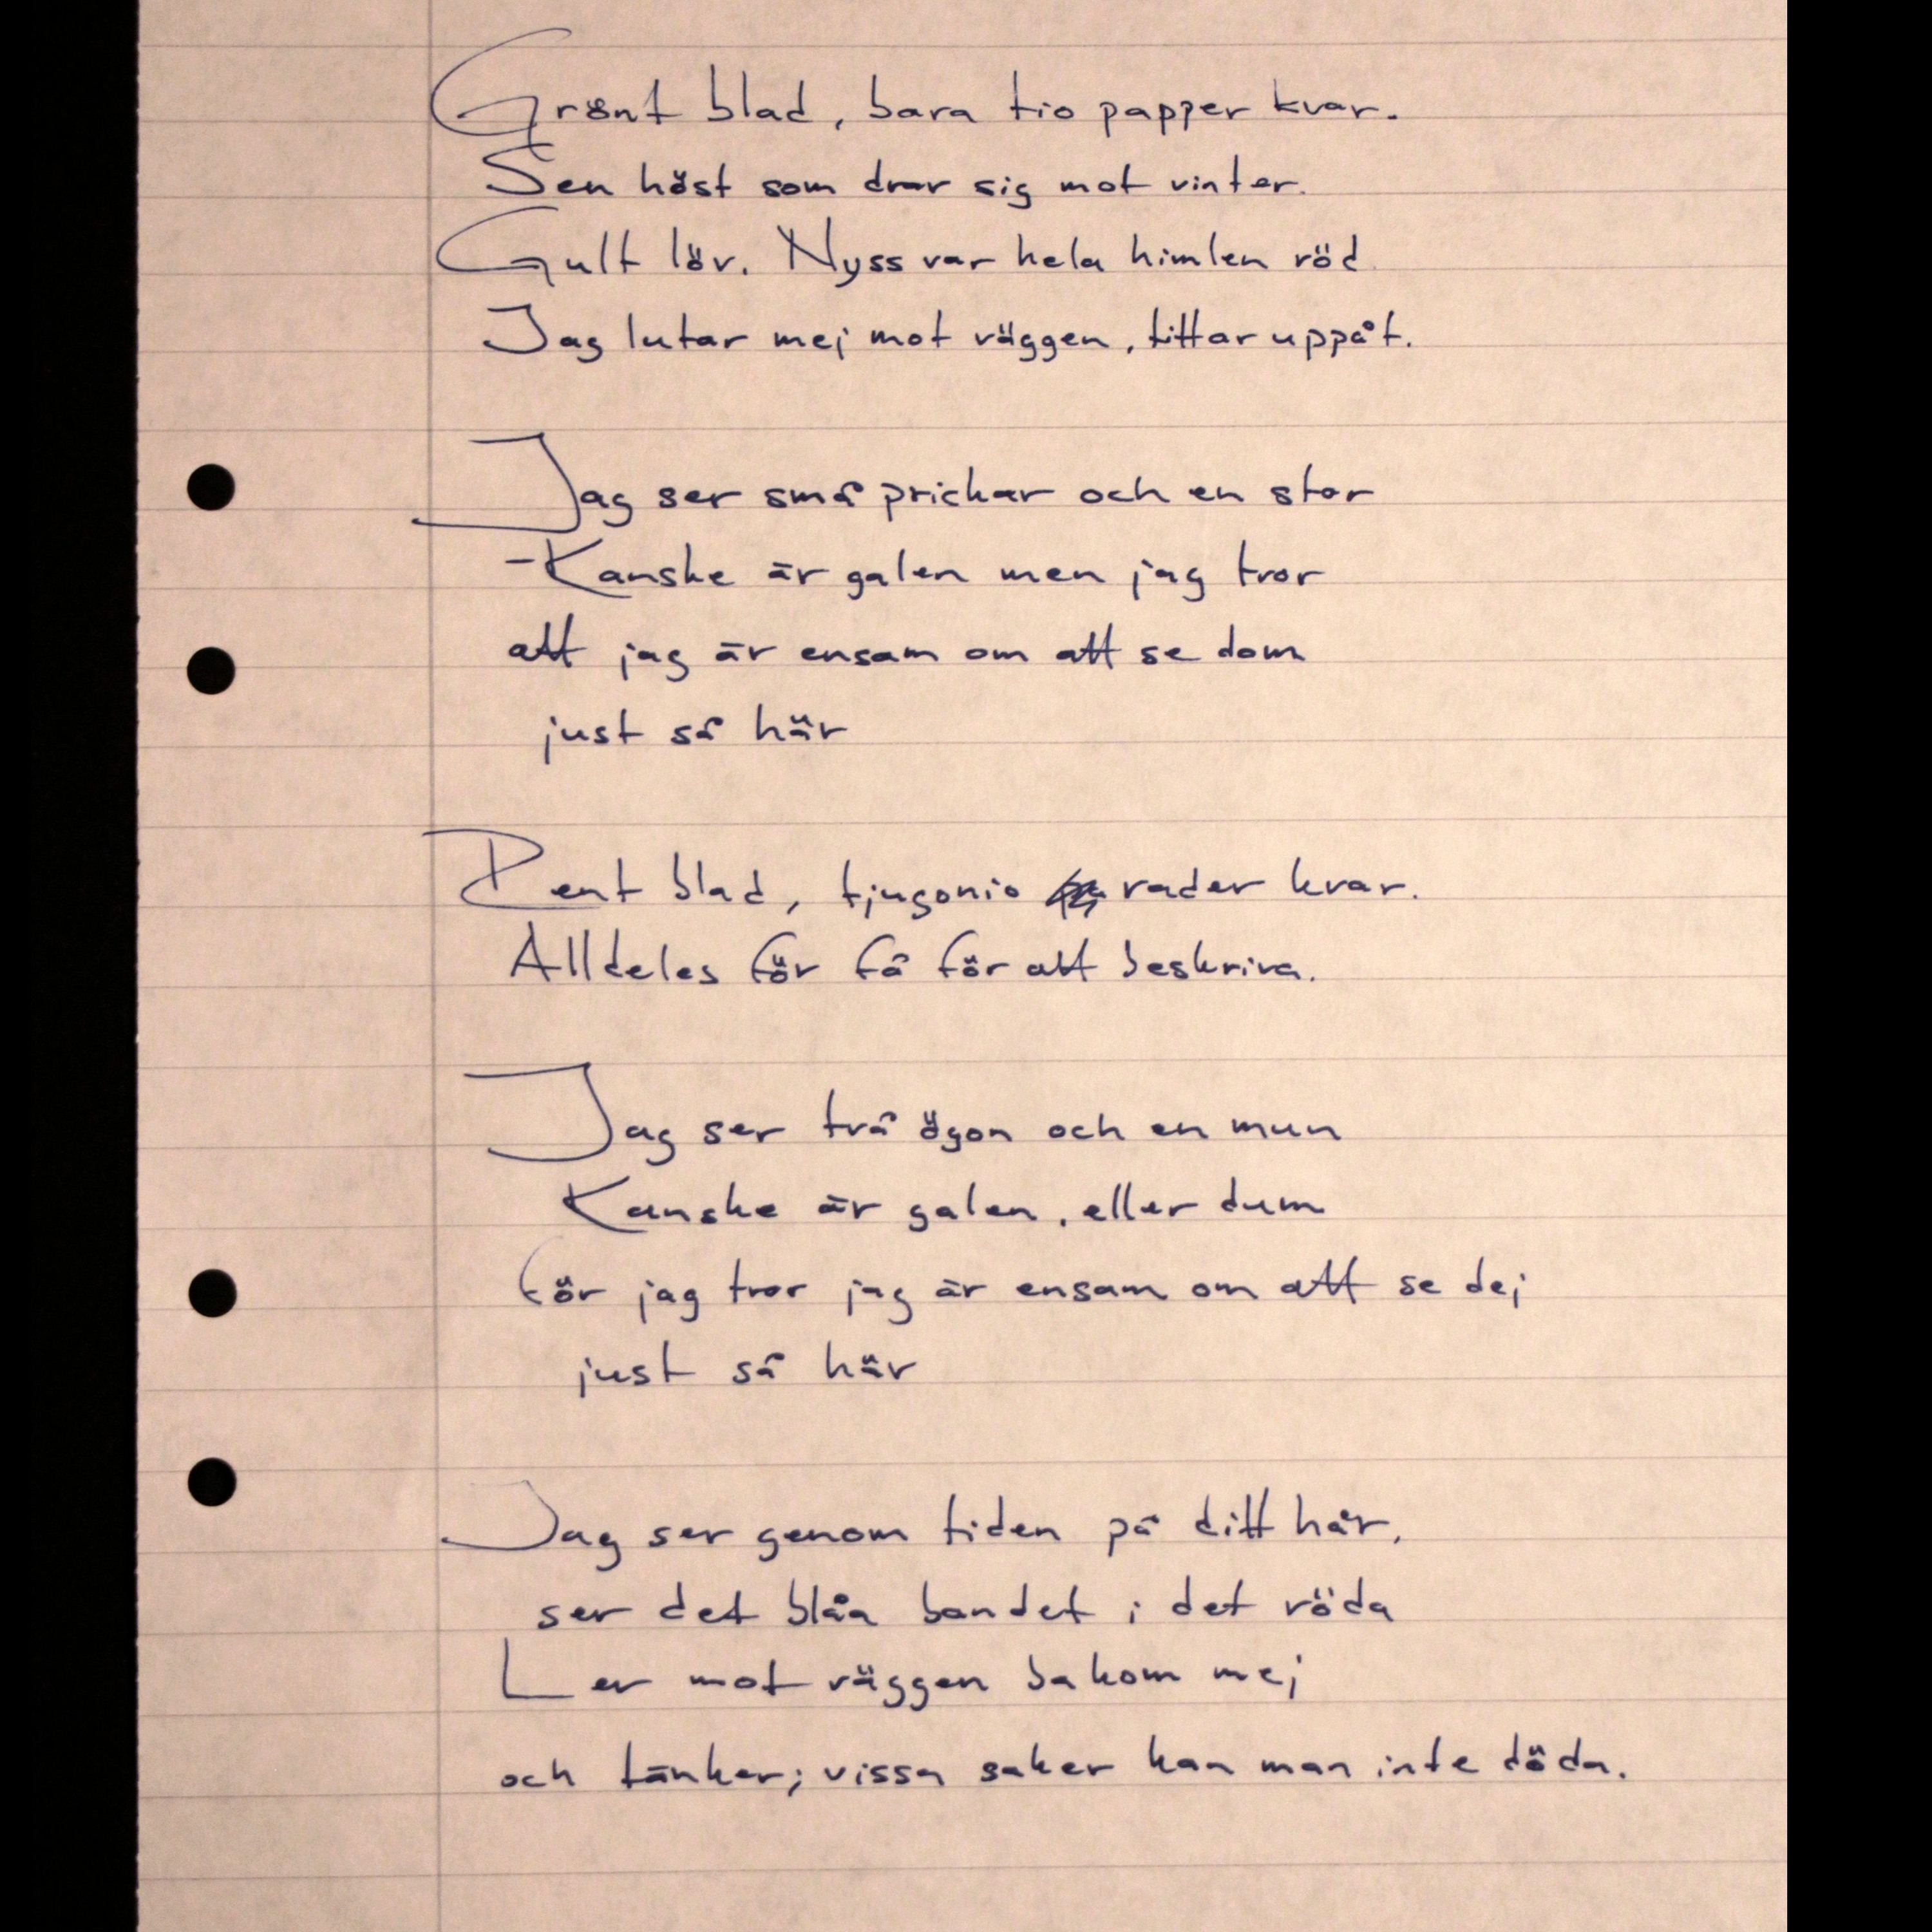 Grönt blad, bara tio papper kvar.
Sen höst som drar sig mot vinter.
Gult löv. Nyss var hela himlen röd
Jag lutar mej mot väggen, tittar uppåt.
Jag ser små prickar och en stor
-Kanske är galen men jag tror
att jag är ensam om att se dom
just så här
Rent blad, tjugonio rader kvar.
Alldeles för få för att beskriva.
Jag ser två ögon och en mun
Kanske är galen, eller dum
för jag tror jag är ensam om att se dej
just så här
Jag ser genom tiden på ditt hår,
ser det blåa bandet i det röda
Ler mot väggen bakom mej
och tänker; vissa saker kan man inte döda.